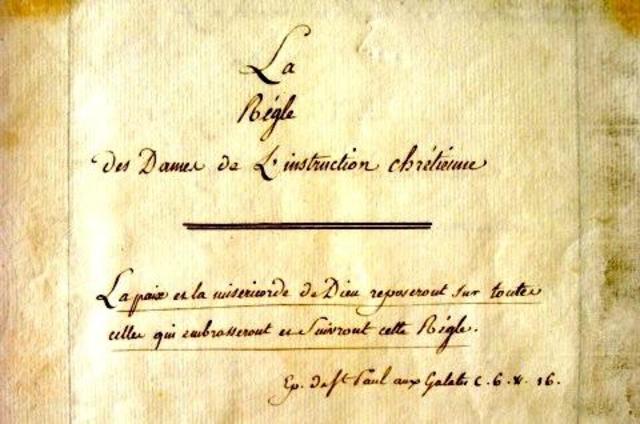 La
Régle
des Dames de L'instruction chrétienne
La paix et la misericorde de Dieu reposeront sur toutes
celles qui embrasseront et Suivront cette Régle.
Ep. de St Paul aux Galates c. 6. v. 16.